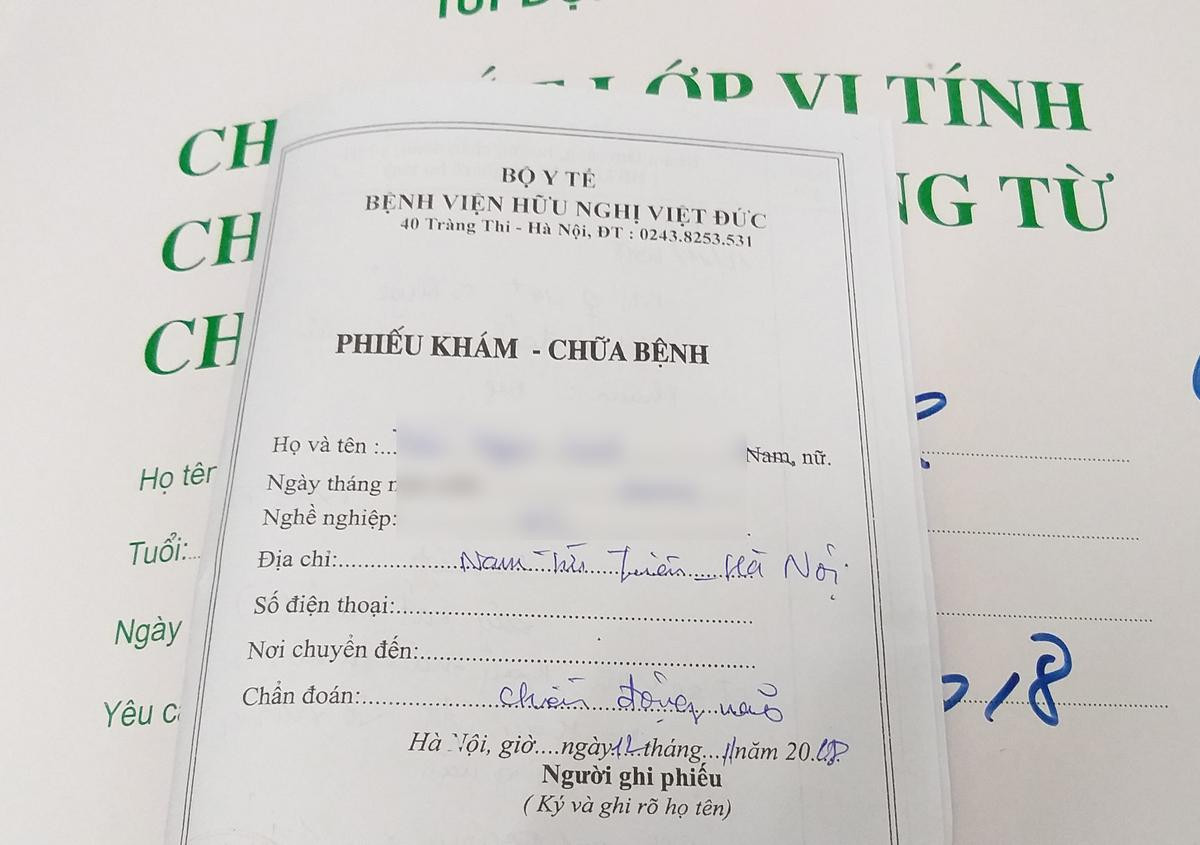 LỚP VI TÍNH
CH
NG TỪ
CH
CH
BỘ Y TẾ
BỆNH VIỆN HỮU NGHỊ VIỆT ĐỨC
40 Tràng Thi - Hà Nội, ĐT : 0243.8253.531
PHIẾU KHÁM - CHỮA BỆNH
Họ và tên :... Nam, nữ.
Ngày tháng n
Nghề nghiệp:
Địa chỉ:..........Nam Từ Liêm - Hà Nội
Số điện thoại:..........
Nơi chuyển đến:..........
Chẩn đoán:..........Chấn động não
Hà Nội, giờ....ngày 12 tháng...11 năm 20.18
Người ghi phiếu
( Ký và ghi rõ họ tên)
Họ tên
Tuổi:
Ngày
Yêu c
18